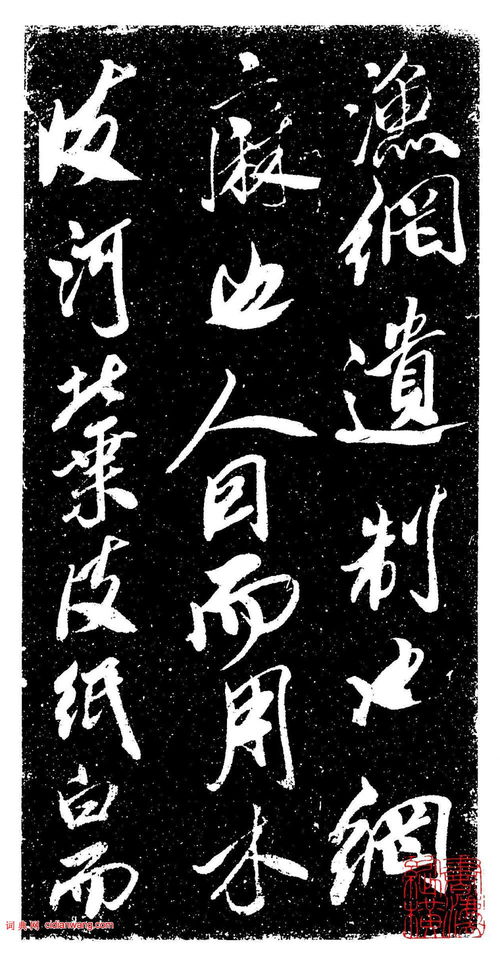 漁網遺制也網
麻也人因而用木
皮河北桒皮紙白而
词典网 cidianwang.com